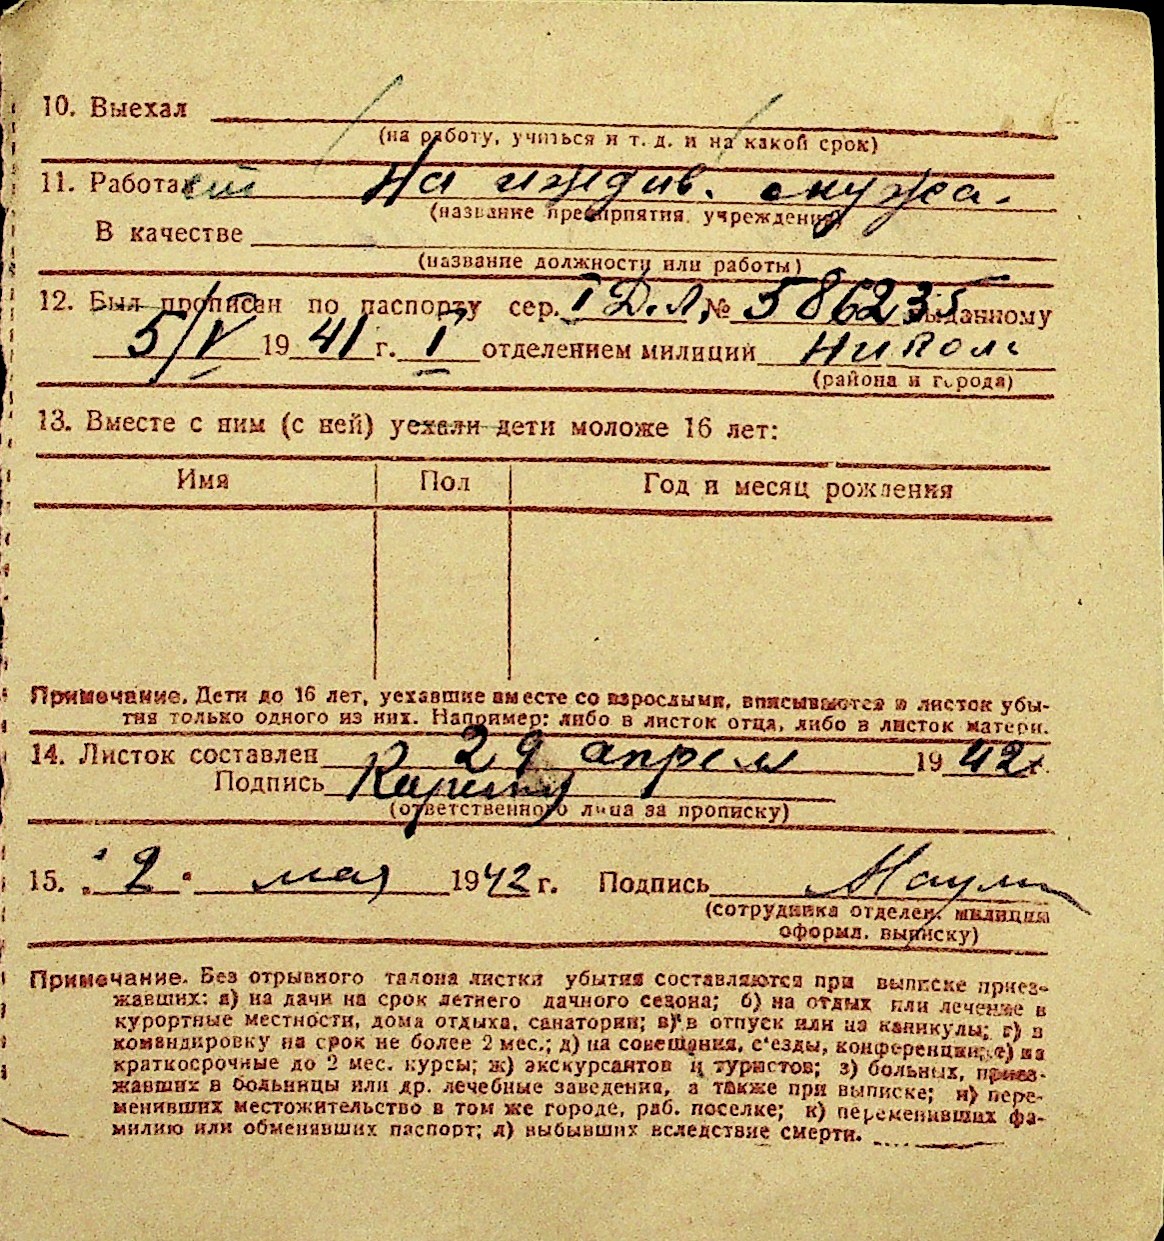 10. Выехал
(на работу, учиться и т. д. и на какой срок)
11. Работает На иждив. мужа.
(название предприятия, учреждения)
В качестве
(название должности или работы)
12. Был прописан по паспорту сер. I Д.Л. № 586235 выданному
5/V 1941 г. I отделением милиции
(района и города)
13. Вместе с ним (с ней) уехали дети моложе 16 лет:
Имя Пол Год и месяц рождения
Примечание. Дети до 16 лет, уехавшие вместе со взрослыми, вписываются в листок убы-
тия только одного из них. Например: либо в листок отца, либо в листок матери.
14. Листок составлен 29 апреля 1942 г.
Подпись
(ответственного лица за прописку)
15. "2" мая 1942 г. Подпись
(сотрудника отделен. милиции
оформл. выписку)
Примечание. Без отрывного талона листки убытия составляются при выписке приез-
жавших: а) на дачи на срок летнего дачного сезона; б) на отдых или лечение в
курортные местности, дома отдыха, санатории; в) в отпуск или на каникулы; г) в
командировку на срок не более 2 мес.; д) на совещания, с'езды, конференции; е) на
краткосрочные до 2 мес. курсы; ж) экскурсантов и туристов; з) больных, приез-
жавших в больницы или др. лечебные заведения, а также при выписке; и) пере-
менивших местожительство в том же городе, раб. поселке; к) переменивших фа-
милию или обменявших паспорт; л) выбывших вследствие смерти.